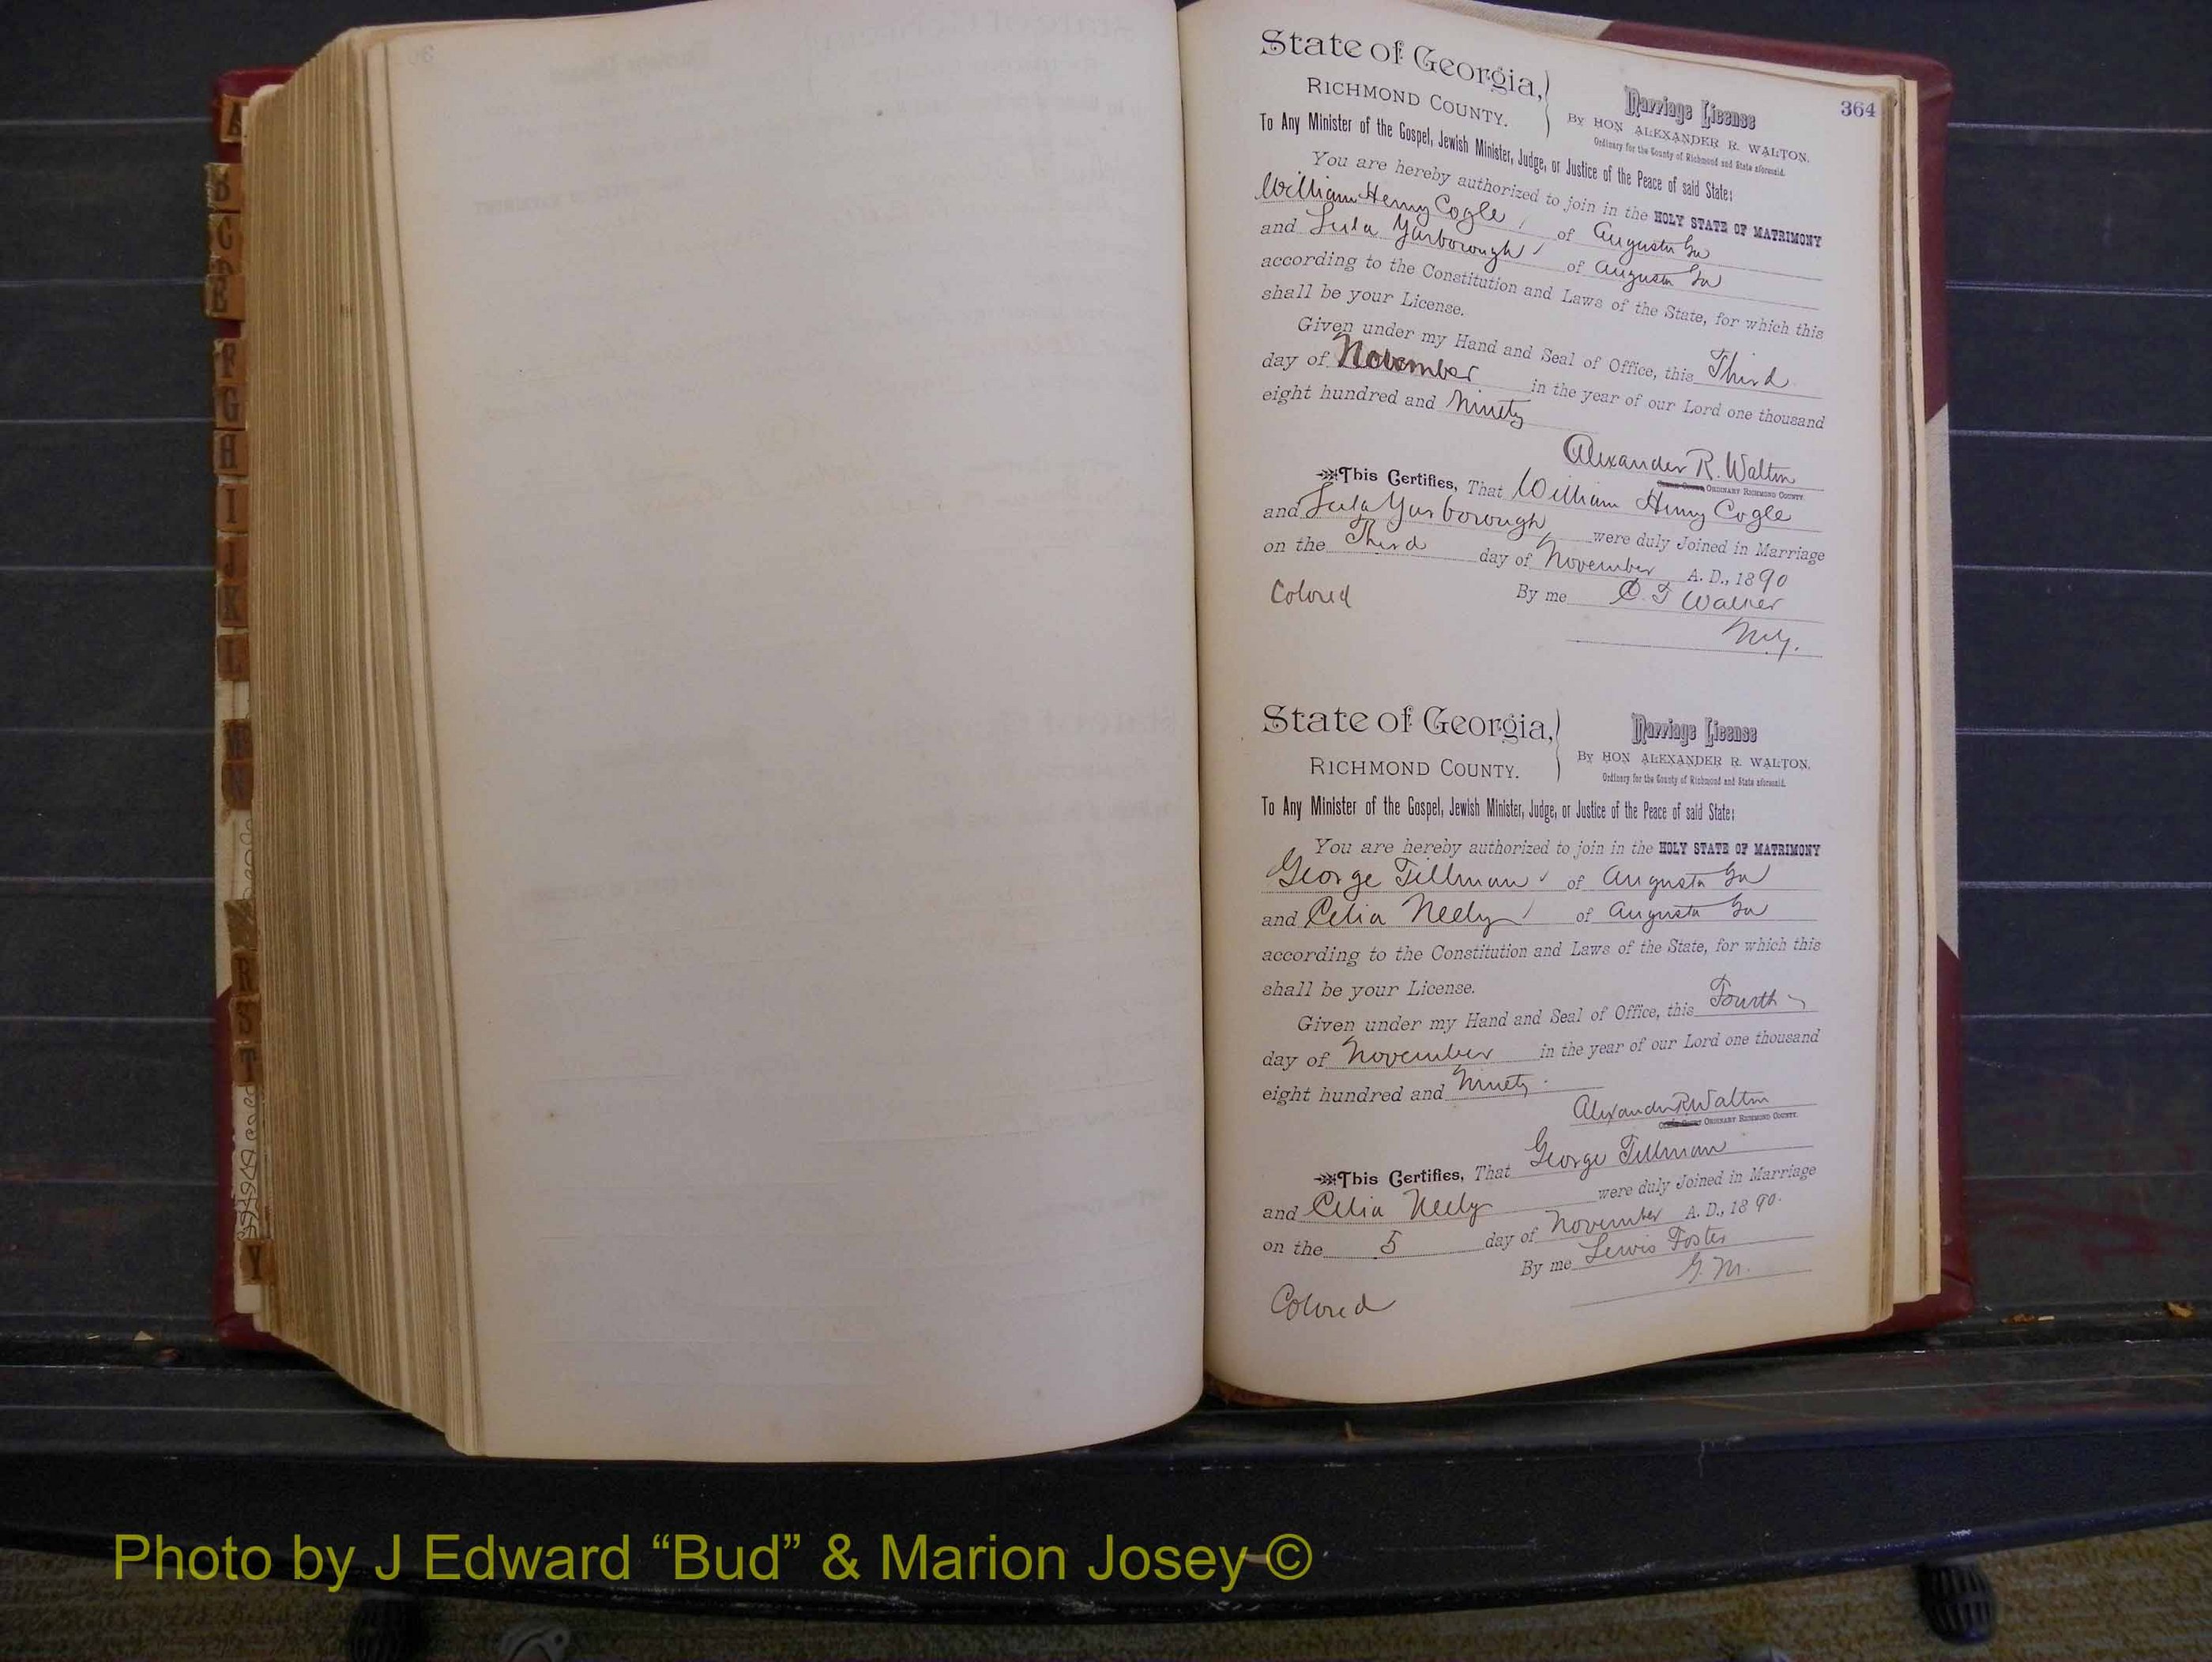 A
B
C
D
E
F
G
H
I
J
K
L
M
N
R
S
T
Y
364
State of Georgia,
RICHMOND COUNTY.
Marriage License
By HON ALEXANDER R. WALTON,
Ordinary for the County of Richmond and State aforesaid.
To Any Minister of the Gospel, Jewish Minister, Judge, or Justice of the Peace of said State:
You are hereby authorized to join in the HOLY STATE OF MATRIMONY
William Henry Cogle of Augusta Ga
and Lula Yarborough of Augusta Ga
according to the Constitution and Laws of the State, for which this
shall be your License.
Given under my Hand and Seal of Office, this Third
day of November in the year of our Lord one thousand
eight hundred and Ninety
Alexander R. Walton
ORDINARY RICHMOND COUNTY.
This Certifies, That William Henry Cogle
and Lula Yarborough were duly Joined in Marriage
on the Third day of November A. D., 1890
Colored By me C. T Walker
M.G.
State of Georgia,
RICHMOND COUNTY.
Marriage License
By HON ALEXANDER R. WALTON,
Ordinary for the County of Richmond and State aforesaid.
To Any Minister of the Gospel, Jewish Minister, Judge, or Justice of the Peace of said State:
You are hereby authorized to join in the HOLY STATE OF MATRIMONY
George Tillman of Augusta Ga
and Celia Neely of Augusta Ga
according to the Constitution and Laws of the State, for which this
shall be your License.
Given under my Hand and Seal of Office, this Fourth
day of November in the year of our Lord one thousand
eight hundred and Ninety
Alexander R Walton
ORDINARY RICHMOND COUNTY.
This Certifies, That George Tillman
and Celia Neely were duly Joined in Marriage
on the 5 day of November A. D., 1890.
By me Lewis Foster
G. M.
Colored
Photo by J Edward “Bud” & Marion Josey ©